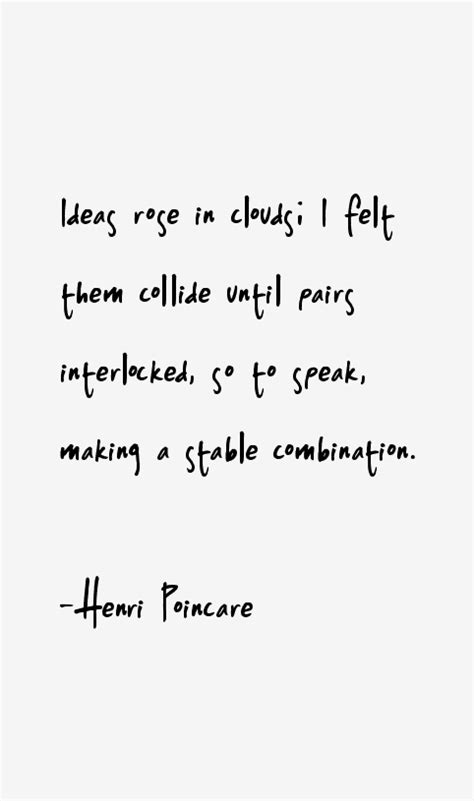 Ideas rose in clouds; I felt
them collide until pairs
interlocked, so to speak,
making a stable combination.
-Henri Poincare